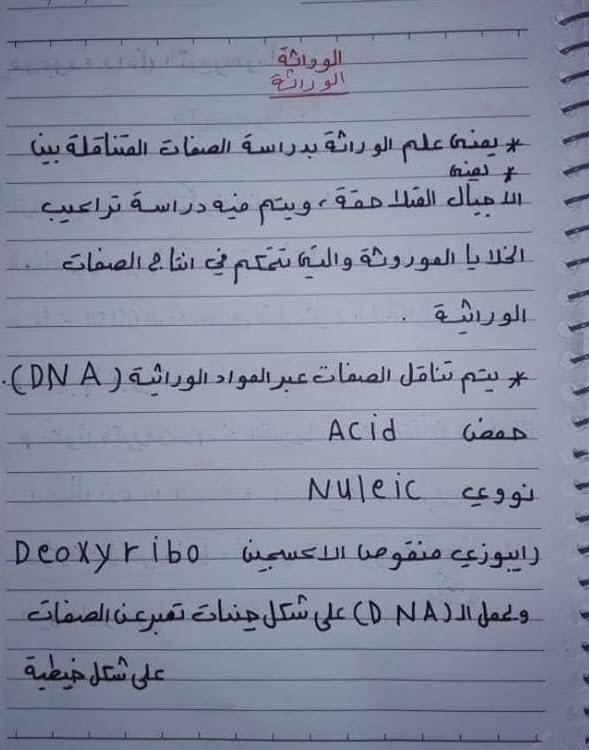 الوراثة
الوراثة
* يعنى علم الوراثة بدراسة الصفات المتناقلة بين
* يعنى
الأجيال المتلاحقة، ويتم فيه دراسة تراكيب
الخلايا الموروثة والتي تتحكم في انتاج الصفات
الوراثية .
* يتم تناقل الصفات عبر المواد الوراثية (DNA).
حمض Acid
نووي Nuleic
رايبوزي منقوص الاكسجين Deoxyribo
ويحمل الـ (DNA) على شكل جينات تعبر عن الصفات
على شكل خيطية